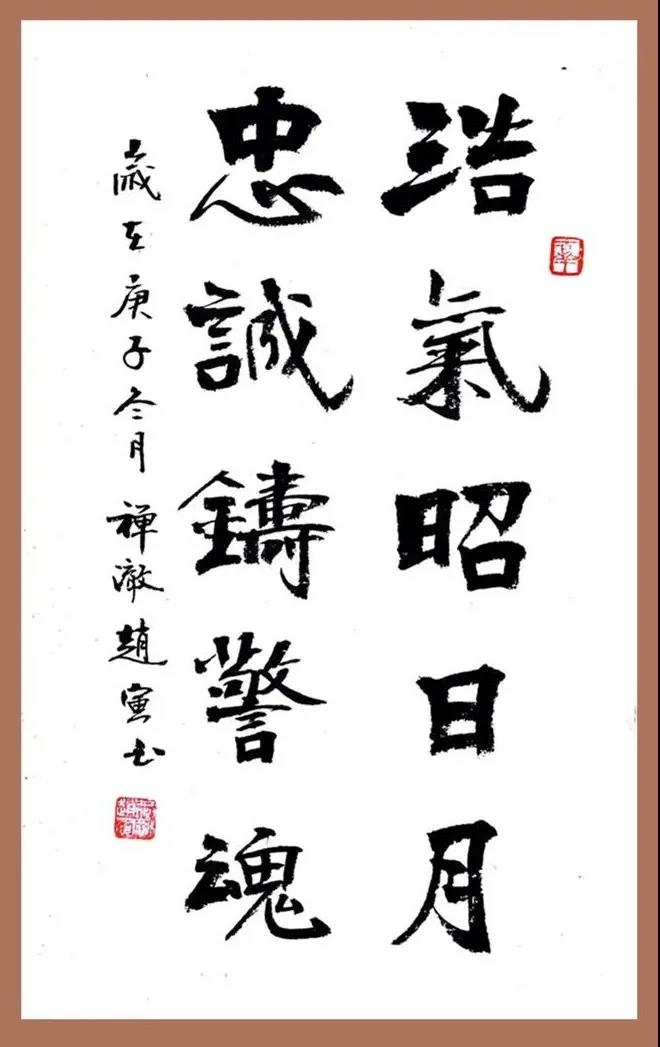 浩氣昭日月
忠誠鑄警魂
歲在庚子冬月禪澈趙寅书